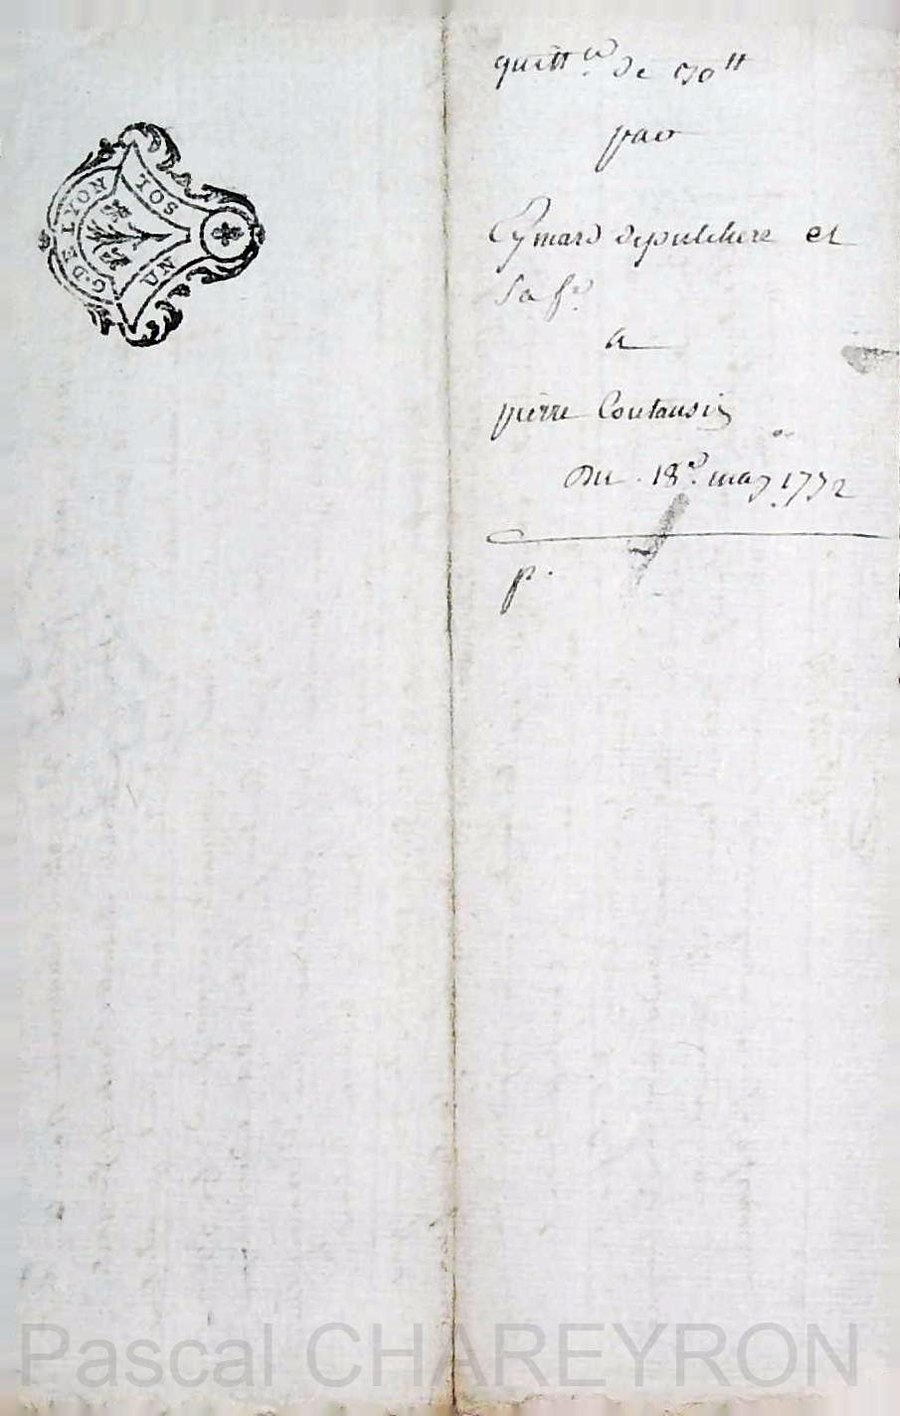 G. DE LYON
UN SOL
quitt.ce de 70 tt
par
Eymard sepulchere et
Sa f.e
a
pierre Coutausis
Du 18.e may 1772
p.
Pascal CHAREYRON